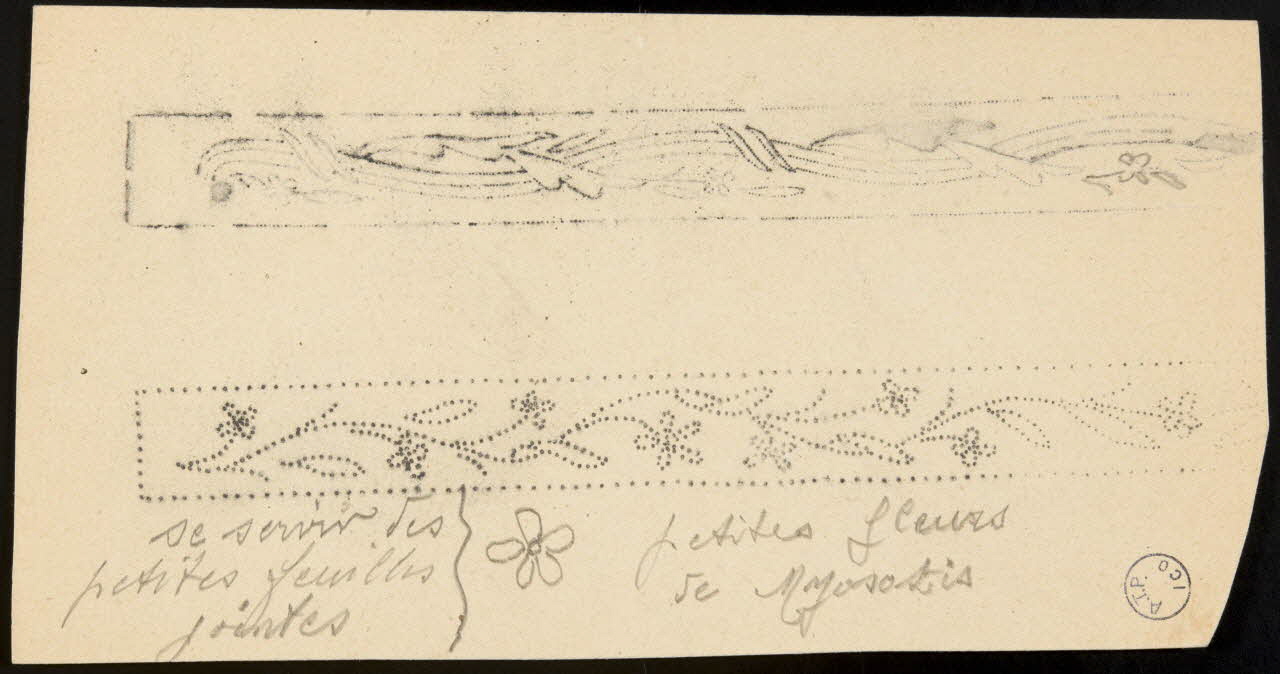 se servir des
petites feuilles
jointes
petites fleurs
de Myosotis
A.T.P.
ICO